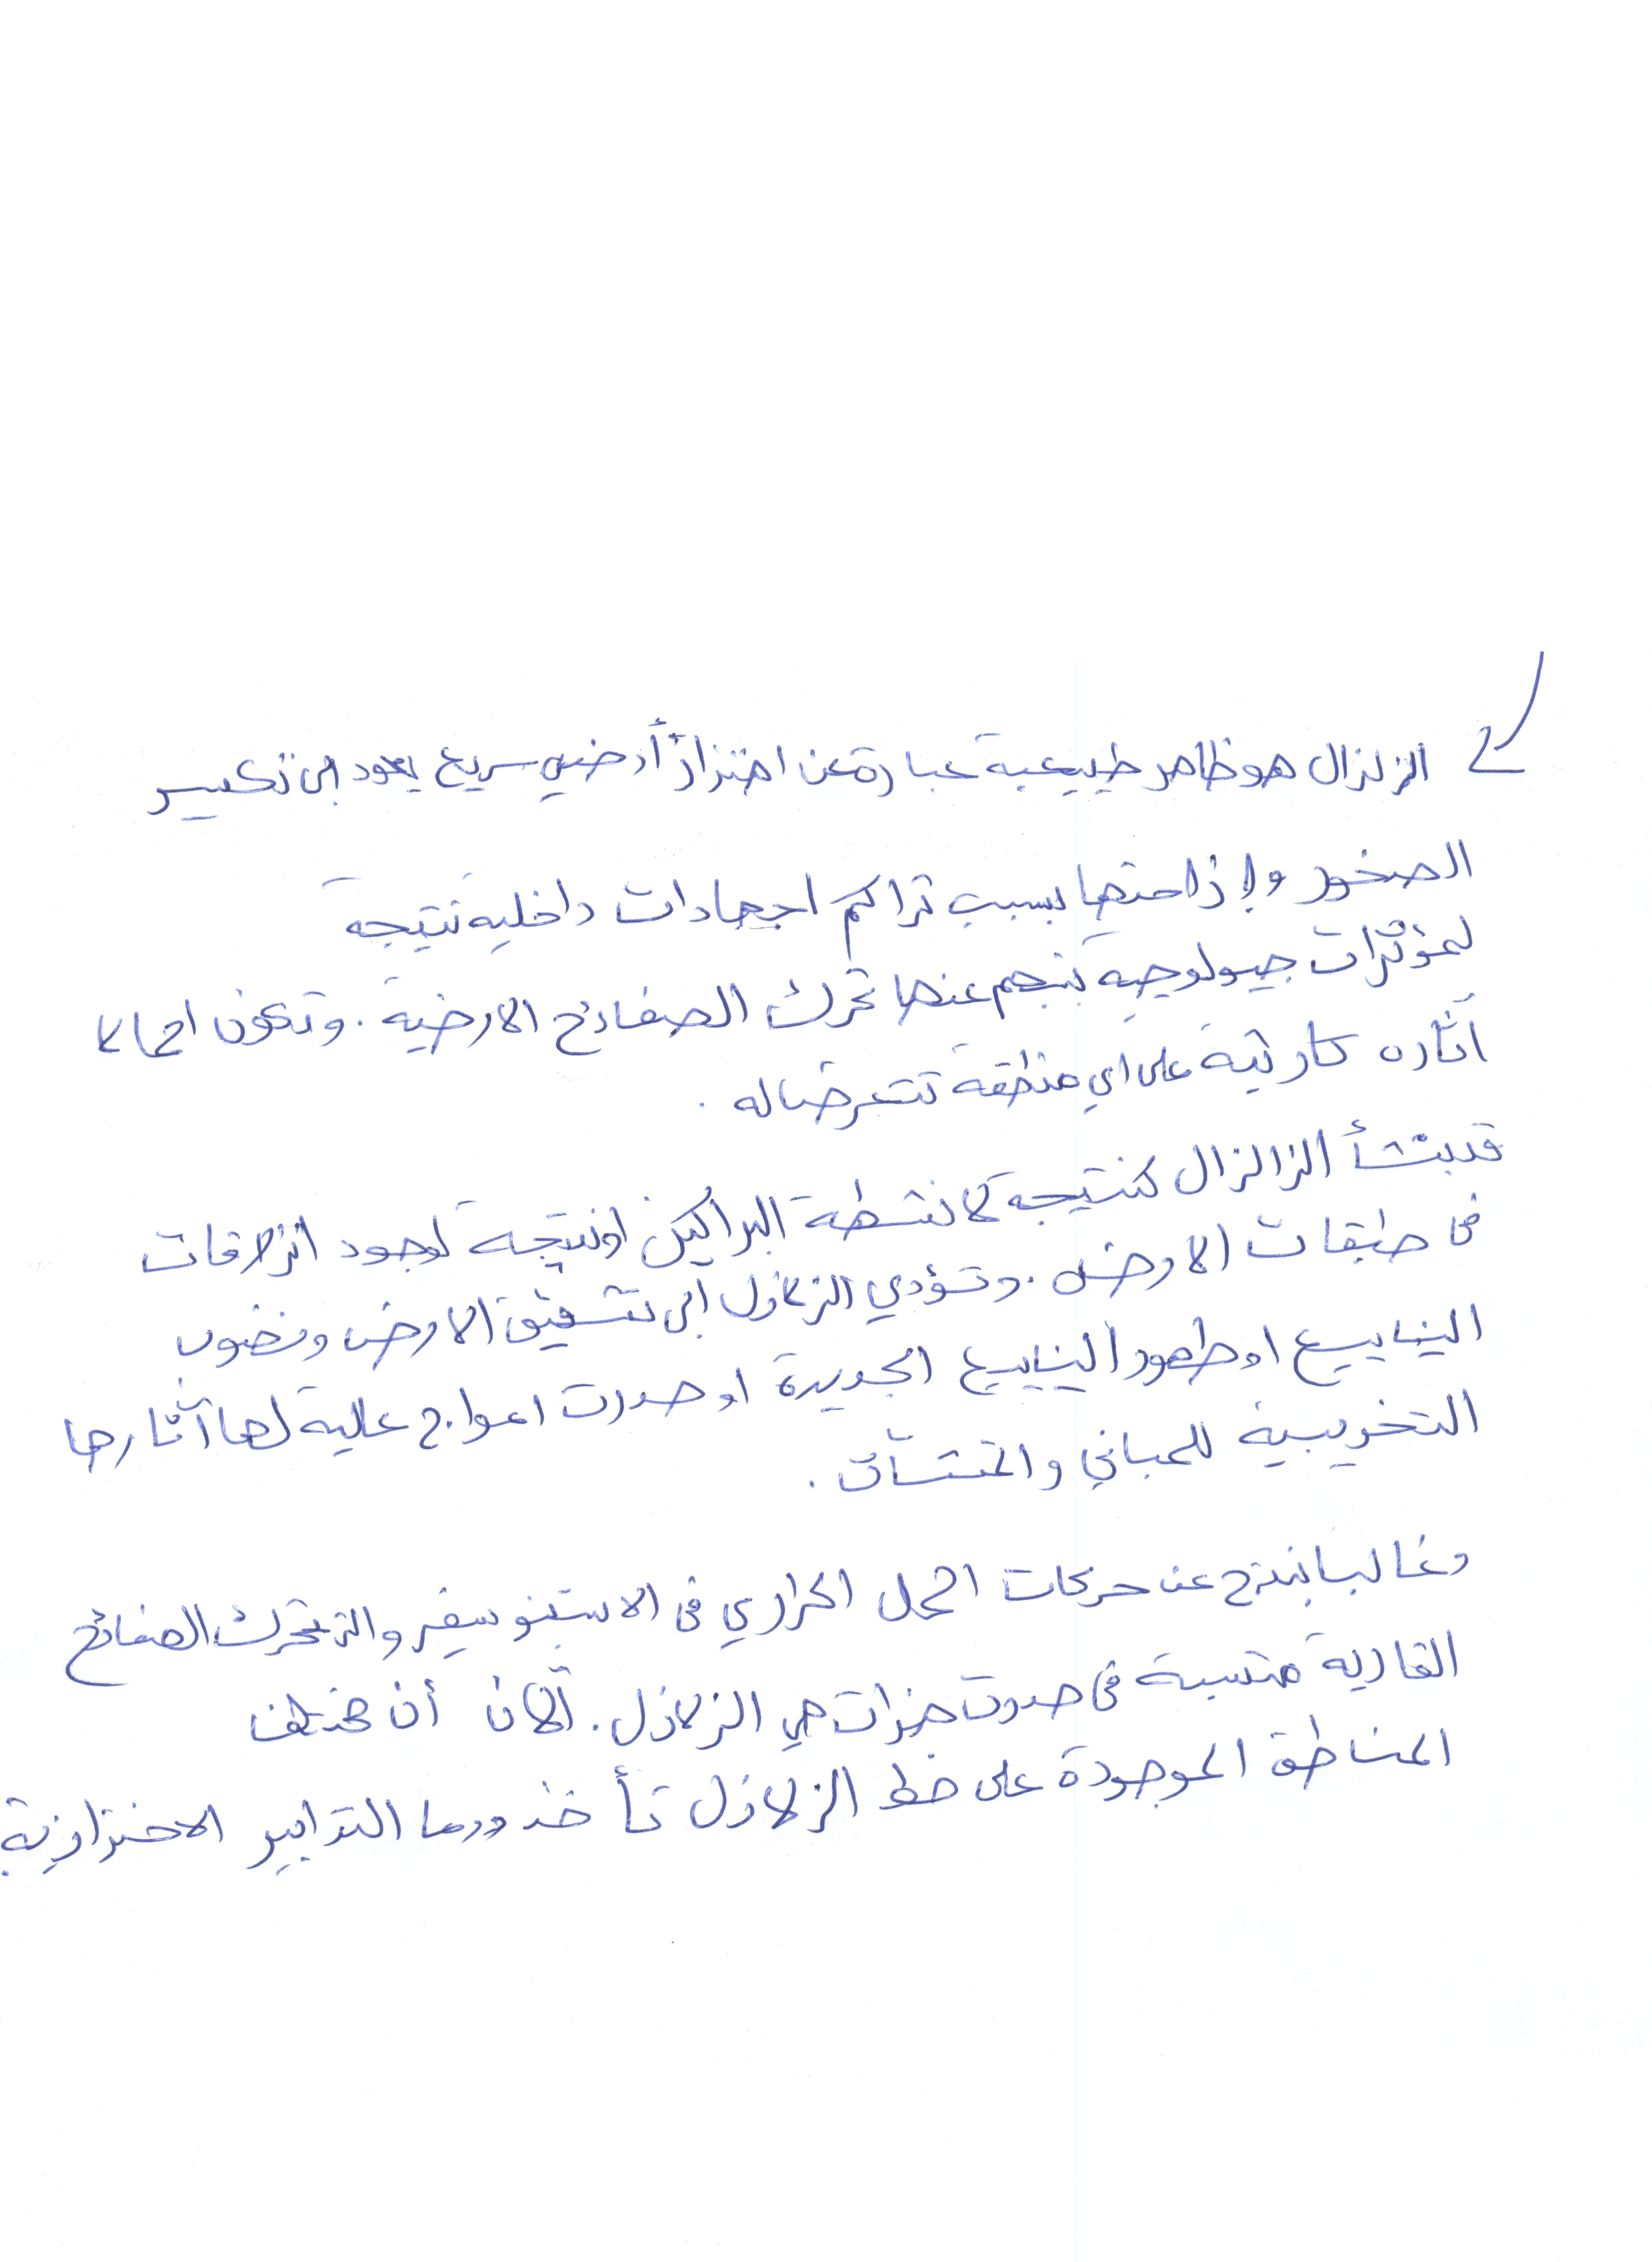 الزلزال هو ظاهر طبيعية عبارة عن اهتزاز أرضي سريع يعود الى تكسير
الصخور وإزاحتها بسبب تراكم اجهادات داخلية نتيجة
لمؤثرات جيولوجية ينجم عنها تحرك الصفائح الارضية. وتكون
آثاره كارثية على اي منطقة تتعرض له.
قد ينشأ الزالزال كنتيجة لانشطة البراكين او نتيجة لوجود انزلاقات
في طبقات الارض. وتؤدي الزلازل الى تشقيق الارض ونضوب
الينابيع او ظهور الينابيع الجديدة او حدوث امواج عالية لها آثارها
التخريبية للمباني والمنشآت.
وغالبا ينتج عن حركات الحمل الحراري في الاستينوسفير والتي تحرك الصفائح
القارية متسببة في حدوث هزات هي الزلازل. الآن أن مختلف
المناطق الموجودة على خط الزلازل تأخذ دوما التدابير الاحترازية